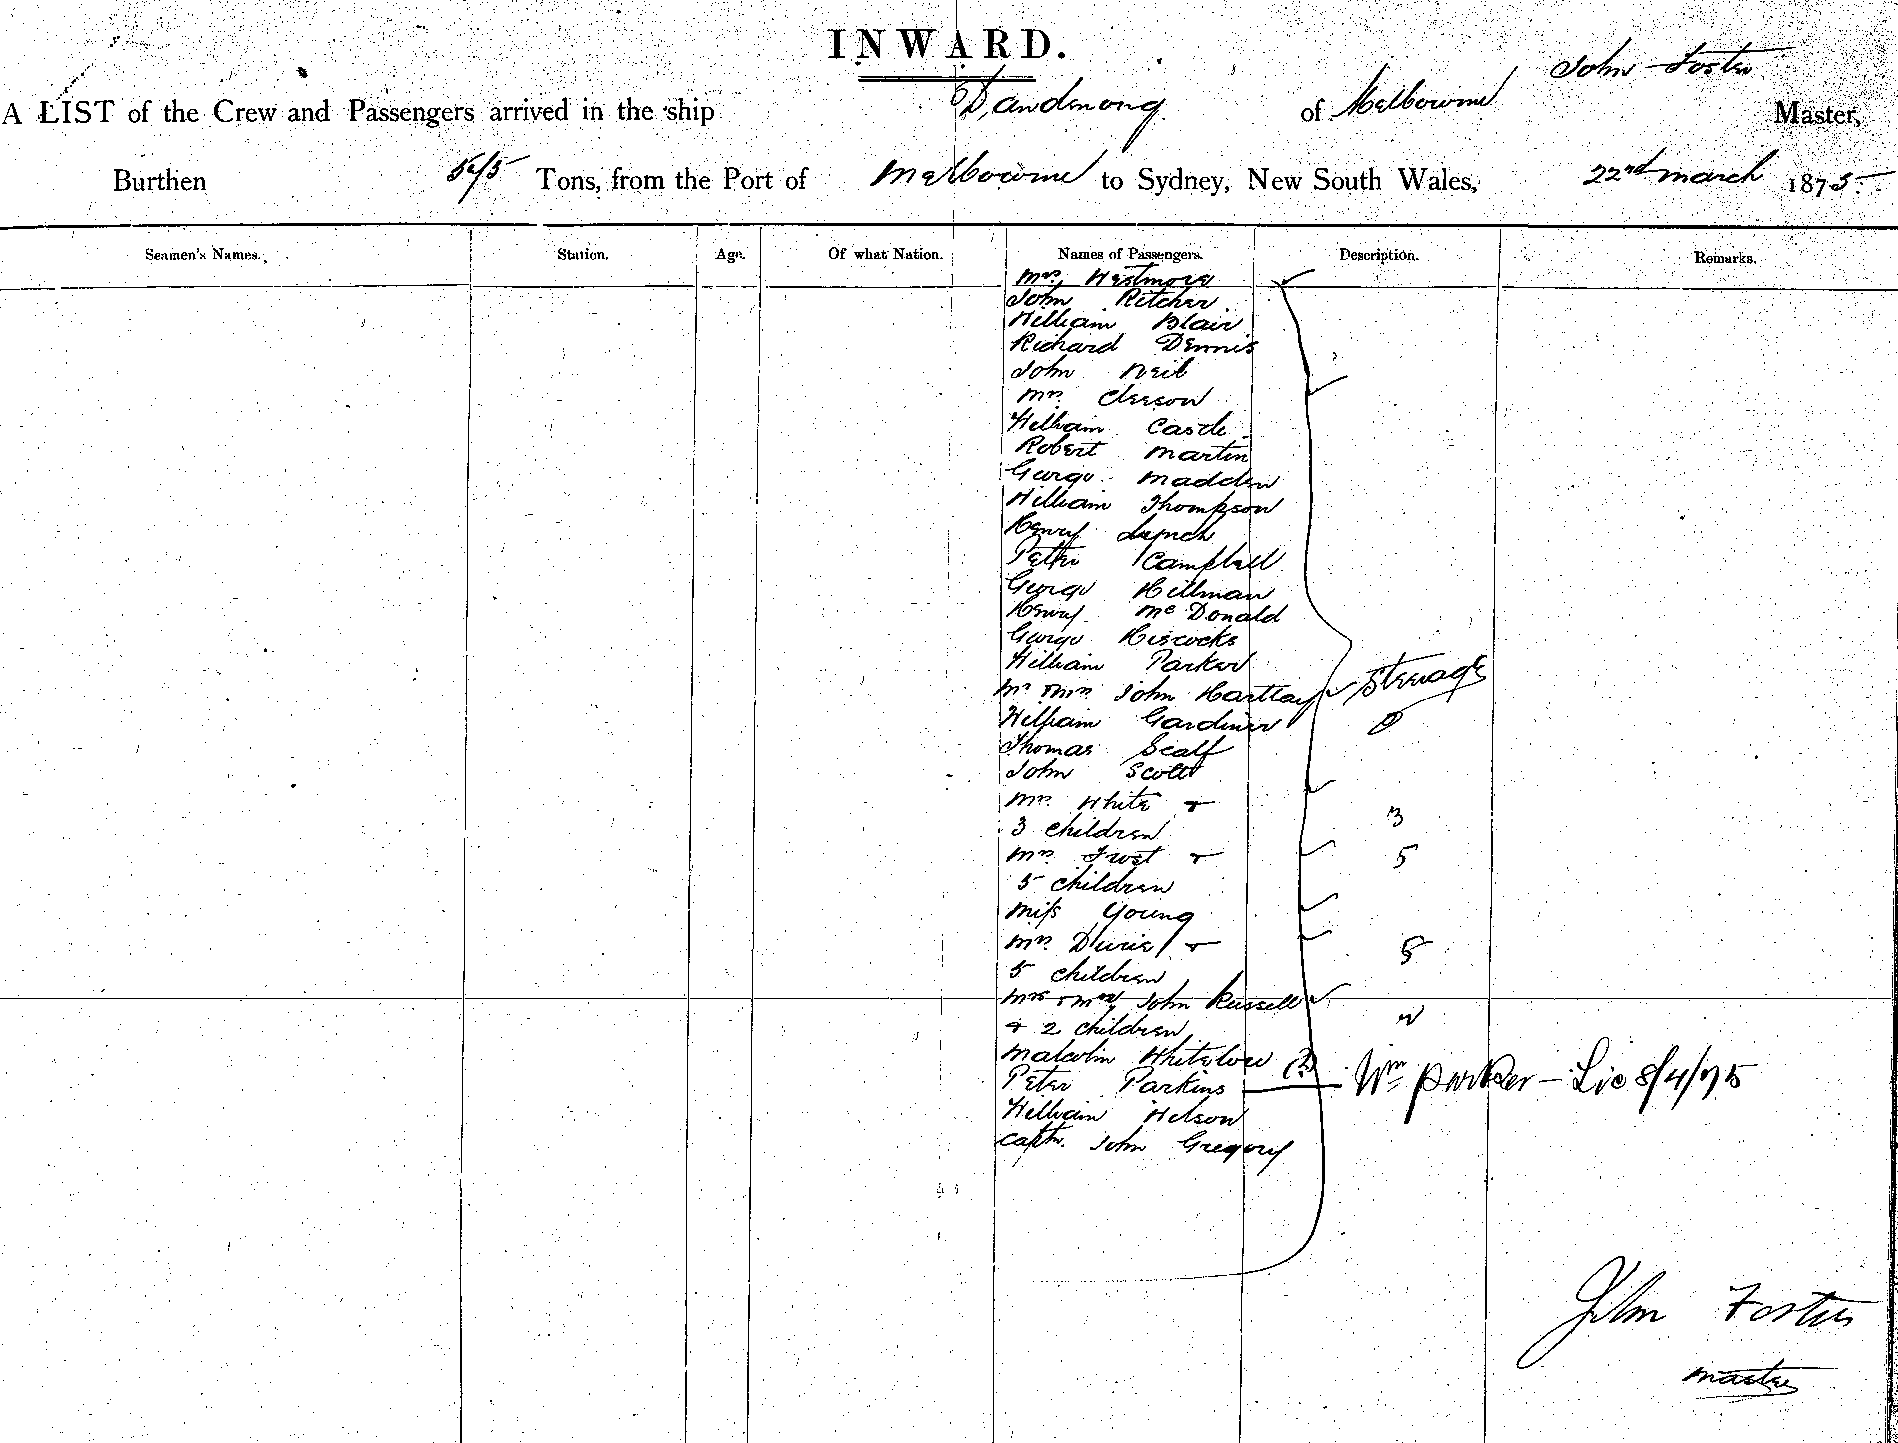 INWARD.
John Foster
A LIST of the Crew and Passengers arrived in the ship Dandenong of Melbourne Master,
Burthen Tons, from the Port of Melbourne to Sydney, New South Wales, 22nd March 1875.
Seamen's Names. Station. Age. Of what Nation. Names of Passengers. Description. Remarks.
Mrs. Westmore
John Ritcher
William Blair
Richard Dennis
John Neil
Mrs. Cleeson
William Castle
Robert Martin
George Madden
William Thompson
Henry Lynch
Peter Campbell
George Hillman
Henry McDonald
George Hiscocks
William Parker
Mr & Mrs John Hartley Steerage
William Gardiner
Thomas Scalf
John Scott
Mrs. White &
3 children 3
Mrs. Frost & 5
5 children
Miss Young
Mrs. &
5 children 5
Mr & Mrs John Russell
& 2 children 2
Malcolm Whitelow
Peter Parkins (?) — Wm Parker – Lic 8/4/75
William Wilson
Captn. John Gregory
John Foster
Master